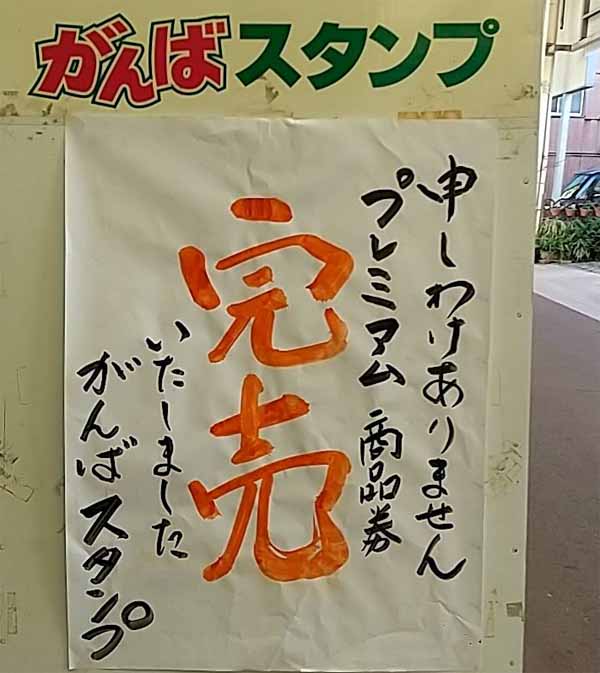 がんばスタンプ
申しわけありません
プレミアム商品券
完売
いたしました
がんばスタンプ